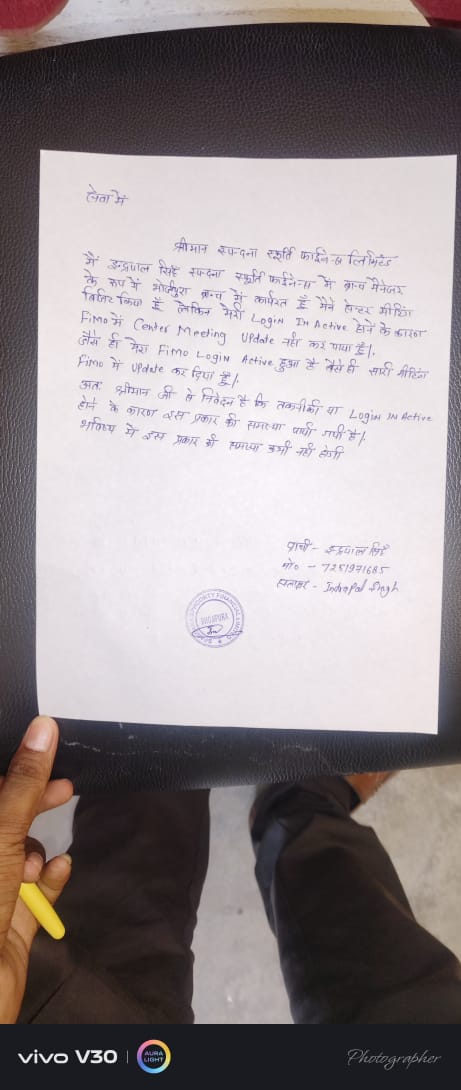 सेवा में
श्रीमान स्पन्दना स्फूर्ति फाईनेन्स लिमिटेड
मैं इन्द्रपाल सिंह स्पन्दना स्फूर्ति फाईनेन्स में ब्रान्च मैनेजर
के रूप में भोजीपुरा ब्रान्च में कार्यरत हूँ मैने सेन्टर मीटिंग
विजिट किया हूँ लेकिन मेरी Login In Active होने के कारण
Fimo में Center Meeting Update नही कर पाया हूँ।
जैसे ही मेरा Fimo Login Active हुआ है वैसे ही सारी मीटिंग
Fimo में Update कर दिया हूँ।
अतः श्रीमान जी से निवेदन है कि तकनीकी या Login IN Active
होने के कारण इस प्रकार की समस्या पायी गयी है।
भविष्य में इस प्रकार की समस्या कभी नही होगी
प्रार्थी - इन्द्रपाल सिंह
मो० - 7251971685
हस्ताक्षर - Indrapal Singh
BHOJIPURA
vivo V30 | AURA LIGHT
Photographer